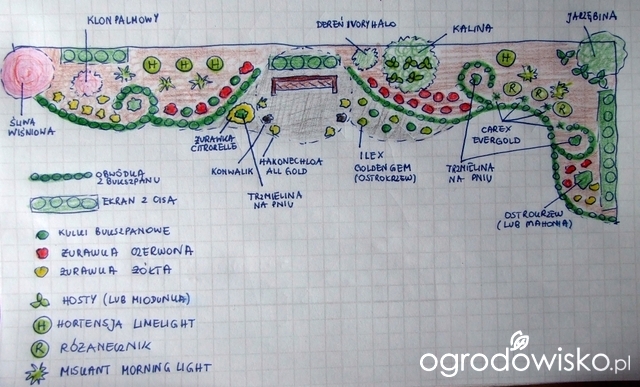 KLON PALMOWY
DEREŃ IVORY HALO
KALINA
JARZĘBINA
H H H
H H
R R R
ŚLIWA
WIŚNIOWA
ŻURAWKA
CITRORELLE
KONWALIK
HAKONECHLOA
ALL GOLD
TRZMIELINA
NA PNIU
ILEX
GOLDEN GEM
(OSTROKRZEW)
TRZMIELINA
NA PNIU
CAREX
EVERGOLD
OSTROKRZEW
(LUB MAHONIA)
OBWÓDKA
Z BUKSZPANU
EKRAN Z CISA
KULKI BUKSZPANOWE
ŻURAWKA CZERWONA
ŻURAWKA ŻÓŁTA
HOSTY (LUB MIODUNKA)
H HORTENSJA LIMELIGHT
R RÓŻANECZNIK
MISKANT MORNING LIGHT
ogrodowisko.pl